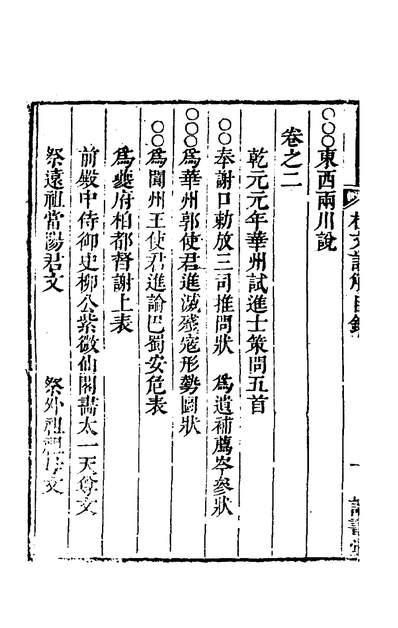 ○○○東西兩川說
卷之二
乾元元年華州試進士策問五首
○○奉謝口勅放三司推問狀 爲遺補薦岑參狀
○○○爲華州郭使君進滅殘寇形勢圖狀
○○爲閬州王使君進論巴蜀安危表
爲夔府柏都督謝上表
前殿中侍御史柳公紫微仙閣畫太一天尊文
祭遠祖當陽君文 祭外祖祖母文